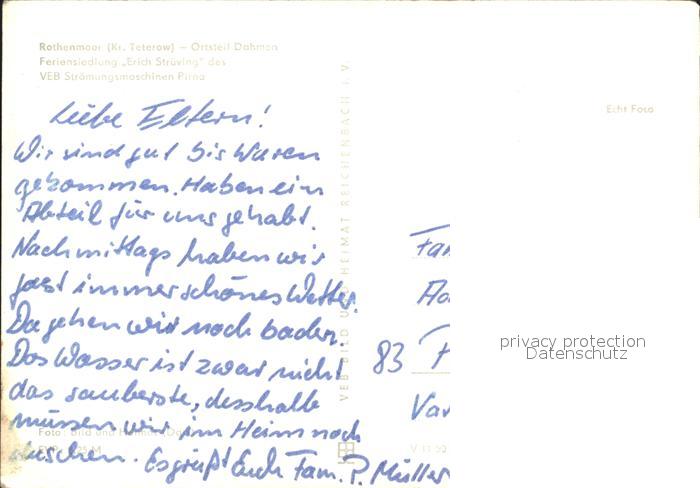 Rothenmoor (Kr. Teterow) – Ortsteil Dahmen
Feriensiedlung „Erich Strüving" des
VEB Strömungsmaschinen Pirna
Echt Foto
Liebe Eltern!
Wir sind gut bis Waren
gekommen. Haben ein
Abteil für uns gehabt.
Nachmittags haben wir
fast immer schönes Wetter.
Da gehen wir noch baden.
Das Wasser ist zwar nicht
das sauberste, desshalb
müssen wir im Heim noch
duschen. Es grüßt Euch Fam. P. Müller
VEB BILD UND HEIMAT REICHENBACH I. V.
Fam
83
privacy protection
Datenschutz
Foto: Bild und Heimat